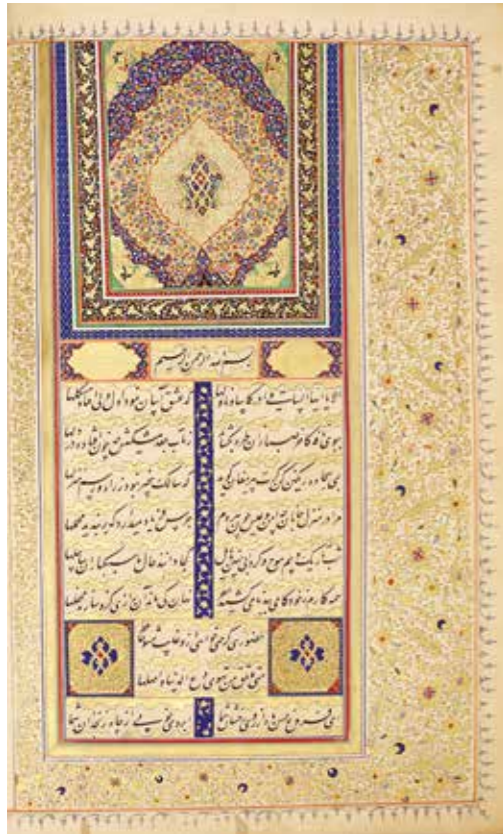 بسم الله الرحمن الرحیم
الا یا ایها الساقی ادر کاسا و ناولها که عشق آسان نمود اول ولی افتاد مشکلها
ببوی نافه کاخر صبا زان طره بگشاید ز تاب جعد مشکینش چه خون افتاد در دلها
بمی سجاده رنگین کن گرت پیر مغان گوید که سالک بیخبر نبود ز راه و رسم منزلها
مرا در منزل جانان چه امن و عیش چون هر دم جرس فریاد میدارد که بربندید محملها
شب تاریک و بیم موج و گردابی چنین هایل کجا دانند حال ما سبکباران ساحلها
همه کارم ز خودکامی به بدنامی کشید آخر نهان کی ماند آن رازی کزو سازند محفلها
حضوری گر همی خواهی ازو غایب مشو حافظ
متی ما تلق من تهوی دع الدنیا و اهملها
ای فروغ ماه حسن از روی رخشان شما آبروی خوبی از چاه زنخدان شما